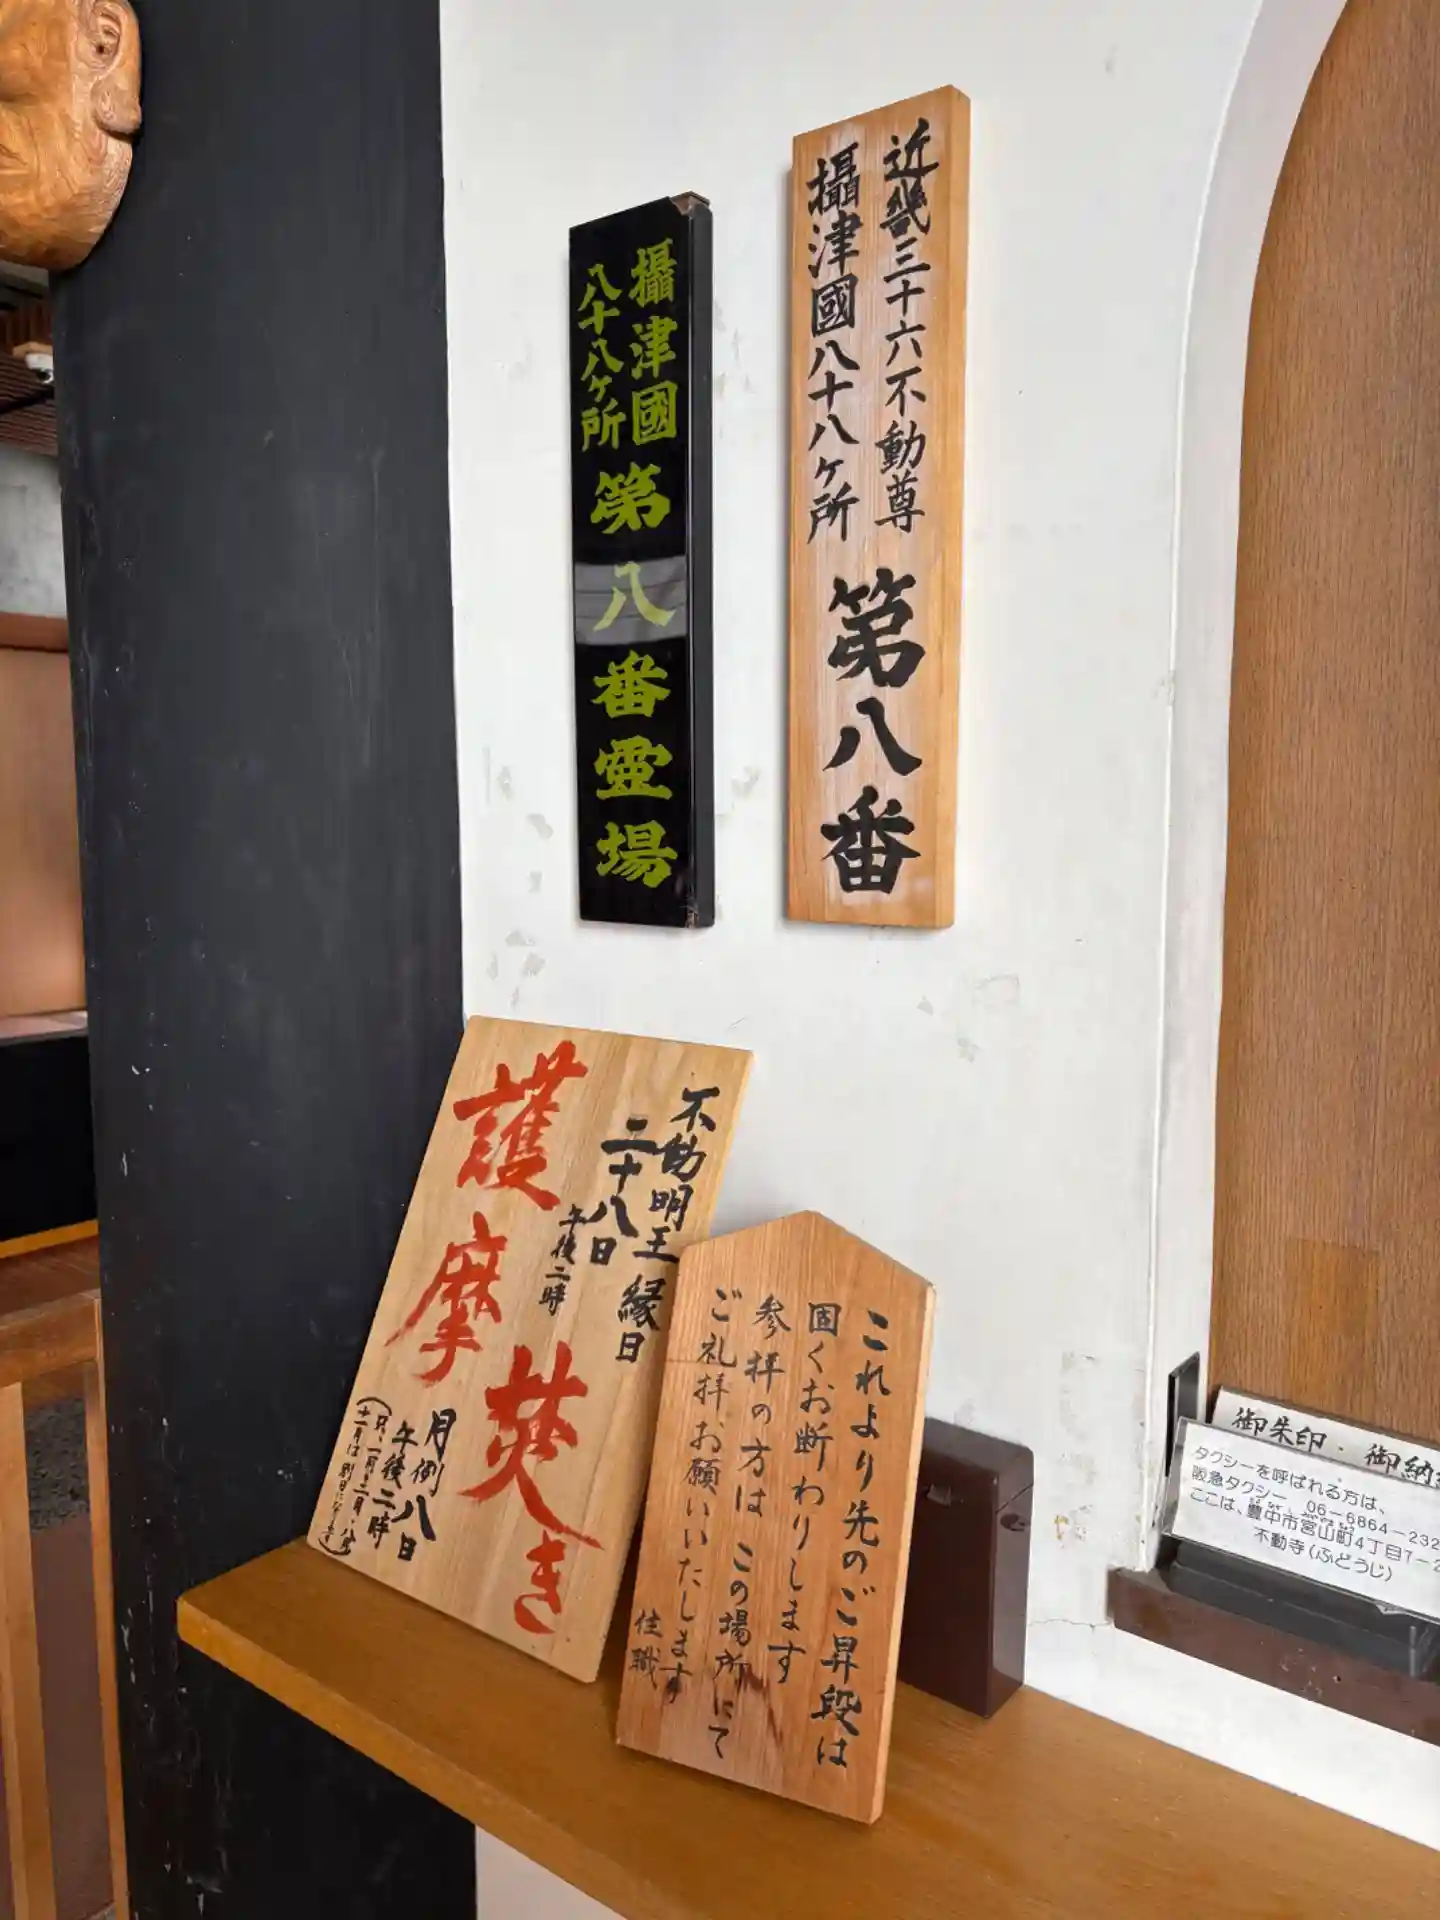 近畿三十六不動尊
攝津國八十八ヶ所
第八番
攝津國
八十八ヶ所
第八番霊場
不動明王縁日
二十八日
午後二時
護摩焚き
月例八日
午後二時
これより先のご昇段は
固くお断わりします
参拝の方は この場所にて
ご礼拝お願いいたします
住職
御朱印・御納
タクシーを呼ばれる方は、
阪急タクシー 06-6864-232
ここは、豊中市宮山町4丁目7-2
不動寺(ふどうじ)